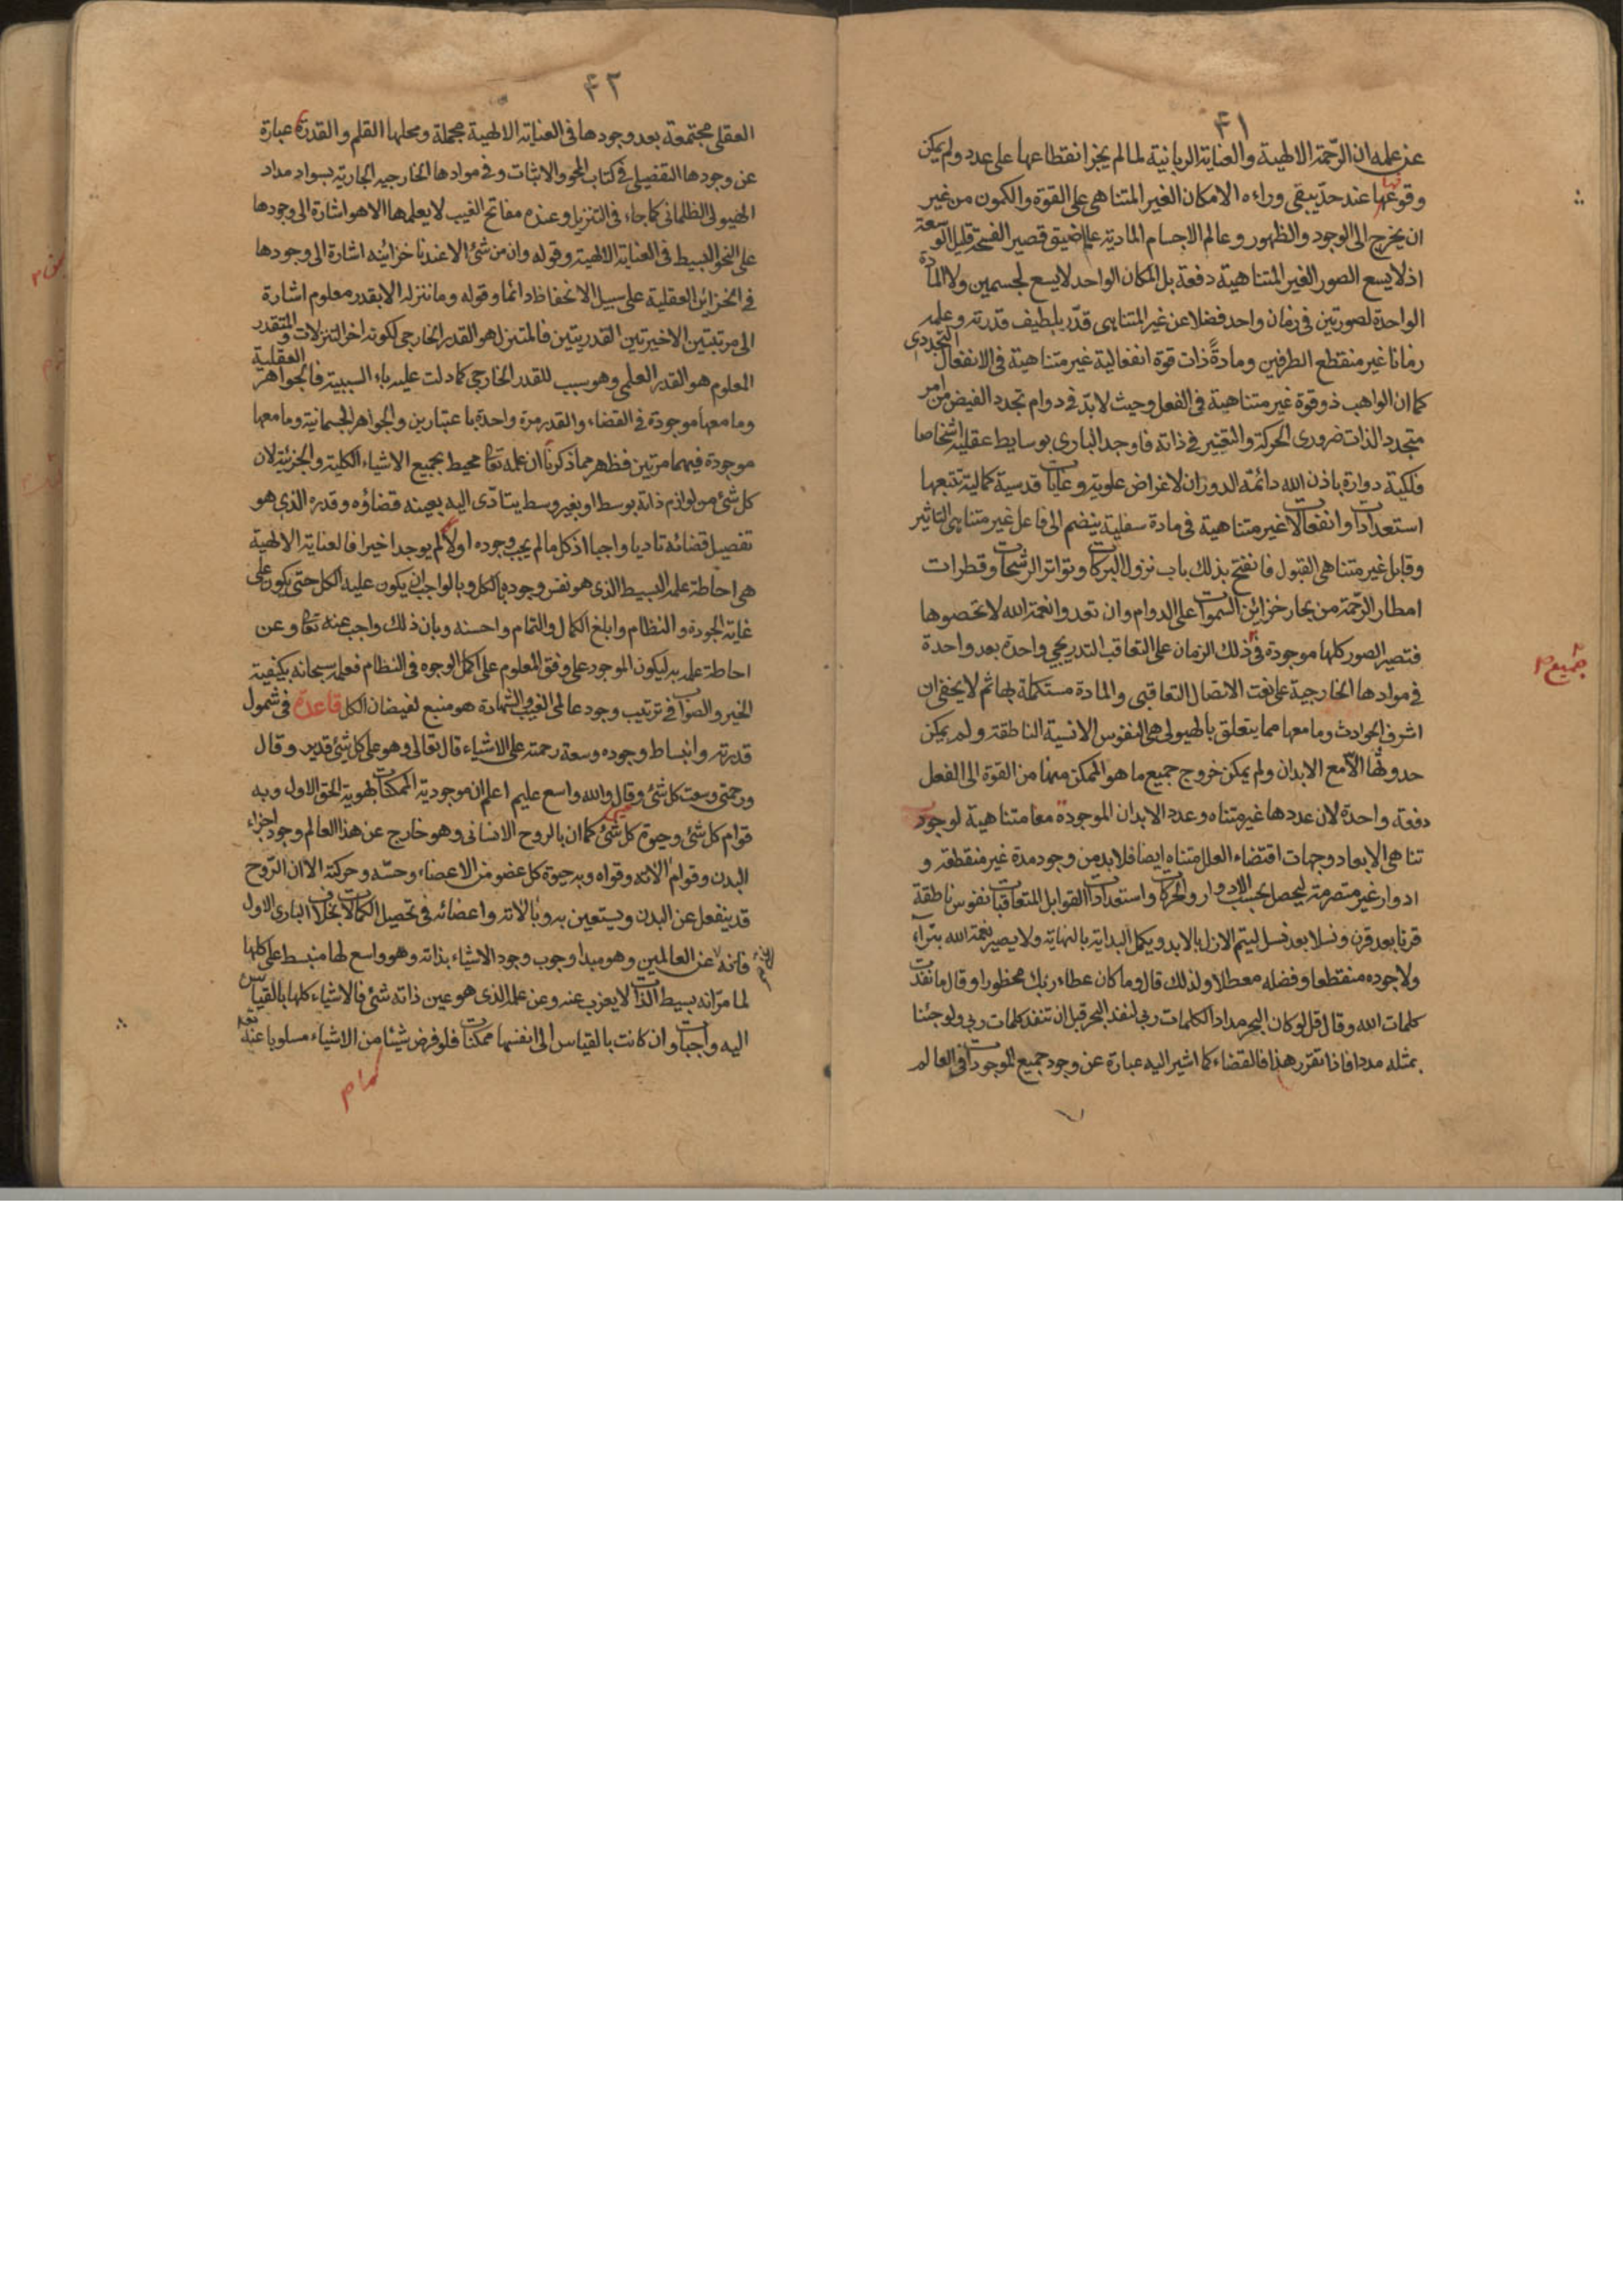 ۴۱
عن علمه ان الرّحمة الالهية والعناية الربانية لما لم يجز انقطاعها على عدد ولم يمكن
وقوعها عند حدّ يبقى وراءه الامكان الغير المتناهى على القوة والكمون من غير
ان يخرج الى الوجود والظهور وعالم الاجسام المادية عالم ضيق قصير الفسحة قليل السعة
اذ لا يسع الصور الغير المتناهية دفعة بل المكان الواحد لا يسع لجسمين ولا المادة
الواحدة لصورتين فى زمان واحد فضلا عن غير المتناهى قدّر بلطيف قدرته وعلمه
زمانا غير منقطع الطرفين ومادةً ذات قوة انفعالية غير متناهية فى الانفعال التجددى
كما ان الواهب ذو قوة غير متناهية فى الفعل وحيث لابدّ فى دوام تجدد الفيض من امر
متجدد الذات ضرورى الحركة والتغير فى ذاته فاوجد البارى بوسايط عقلية اشخاصا
فلكية دوارة باذن الله دائمة الدوران لاغراض علوية وغايات قدسية كمالية تتبعها
استعدادات وانفعالات غير متناهية فى مادة سفلية ينضم الى فاعل غير متناهى التاثير
وقابل غير متناهى القبول فانفتح بذلك باب نزول البركات وتواتر الرشحات وقطرات
امطار الرّحمة من بحار خزائن السموات على الدوام وان تعدوا نعمة الله لا تحصوها
فتصير الصور كلها موجودة فى ذلك الزمان على التعاقب التدريجى واحدة بعد واحدة
جميع
فى موادها الخارجية على نعت الاتصال التعاقبى والمادة مستكملة بها ثم لا يخفى ان
اشرف الحوادث وما معها مما يتعلق بالهيولى هى النفوس الانسية الناطقة ولم يمكن
حدوثها الّا مع الابدان ولم يمكن خروج جميع ما هو الممكن منها من القوة الى الفعل
دفعة واحدة لان عددها غير متناه وعدد الابدان الموجودة معا متناهية لوجوب
تناهى الابعاد وجهات اقتضاء العلل متناه ايضا فلابد من وجود مدة غير منقطعة و
ادوار غير متصرمة ليحصل بحسب الادوار والحركات واستعدادات القوابل المتعاقبات نفوس ناطقة
قرنا بعد قرن ونسلا بعد نسل ليتم الازل بالابد ويكمل البداية بالنهاية ولا يصير نعمة الله بتراء
ولا جوده منقطعا وفضله معطلا ولذلك قال وما كان عطاء ربك محظورا وقال ما نفدت
كلمات الله وقال قل لو كان البحر مدادا لكلمات ربى لنفد البحر قبل ان تنفد كلمات ربى ولو جئنا
بمثله مددا فاذا تقرر هذا فالقضاء كما اشير اليه عبارة عن وجود جميع الموجودات فى العالم
۴۲
العقلى مجتمعة بعد وجودها فى العناية الالهية مجملة ومحلها القلم والقدر عبارة
عن وجودها التفصيلى فى كتاب المحو والاثبات وفى موادها الخارجية الجارية بسواد مداد
الهيولى الظلمانى كما جاء فى التنزيل وعنده مفاتح الغيب لا يعلمها الا هو اشارة الى وجودها
على النحو البسيط فى العناية الالهية وقوله وان من شئ الا عندنا خزائنه اشارة الى وجودها
فى الخزائن العقلية على سبيل الانحفاظ دائما وقوله وما ننزله الا بقدر معلوم اشارة
الى مرتبتين الاخيرتين القدريتين فالمتنزل هو القدر الخارجى لكونه اخر التنزلات والمتقدر
المعلوم هو القدر العلمى وهو سبب للقدر الخارجى كما دلت عليه باء السببية فالجواهر العقلية
وما معها موجودة فى القضاء والقدر مرة واحدة باعتبارين والجواهر الجسمانية وما معها
موجودة فيهما مرتين فظهر مما ذكرنا ان علمه تعالى محيط بجميع الاشياء الكلية والجزئية لان
كل شئ من لوازم ذاته بوسط او بغير وسط يتادّى اليه بعينه قضاؤه وقدره الذى هو
تفصيل قضائه تاديا واجبا اذ كل ما لم يجب وجوده اولا لم يوجد اخيرا فالعناية الالهية
هى احاطة علمه البسيط الذى هو نفس وجوده بالكل وبالواجب ان يكون عليه الكل حتى يكون على
غاية الجودة والنظام وابلغ الكمال والتمام واحسنه وبان ذلك واجب عنه تعالى وعن
احاطة علمه به ليكون الموجود على وفق المعلوم على اكمل الوجوه فى النظام فعلمه سبحانه بكيفية
الخير والصواب فى ترتيب وجود عالمى الغيب والشهادة هو منبع لفيضان الكل قاعدة فى شمول
قدرته وانبساط وجوده وسعة رحمته على الاشياء قال تعالى وهو على كل شئ قدير وقال
ورحمتى وسعت كل شئ وقال والله واسع عليم اعلم ان موجودية الممكنات بهوية الحق الاول وبه
قوام كل شئ وحيوة كل شئ كما ان بالروح الانسانى وهو خارج عن هذا العالم وجود اجزاء
البدن وقوام الاته وقواه وبه حيوة كل عضو من الاعضاء وحسّه وحركته الا ان الرّوح
قد ينفعل عن البدن ويستعين به وبالاته واعضائه فى تحصيل الكمالات بخلاف البارى الاول
فانه عن العالمين وهو مبدا وجوب وجود الاشياء بذاته وهو واسع لها منبسط على كلها
لما مرّ انه بسيط الذات لا يعزب عنه وعن علمه الذى هو عين ذاته شئ فالاشياء كلها بالقياس
اليه واجبات وان كانت بالقياس الى انفسها ممكنات فلو فرض شيئا من الاشياء مسلوبا عنه